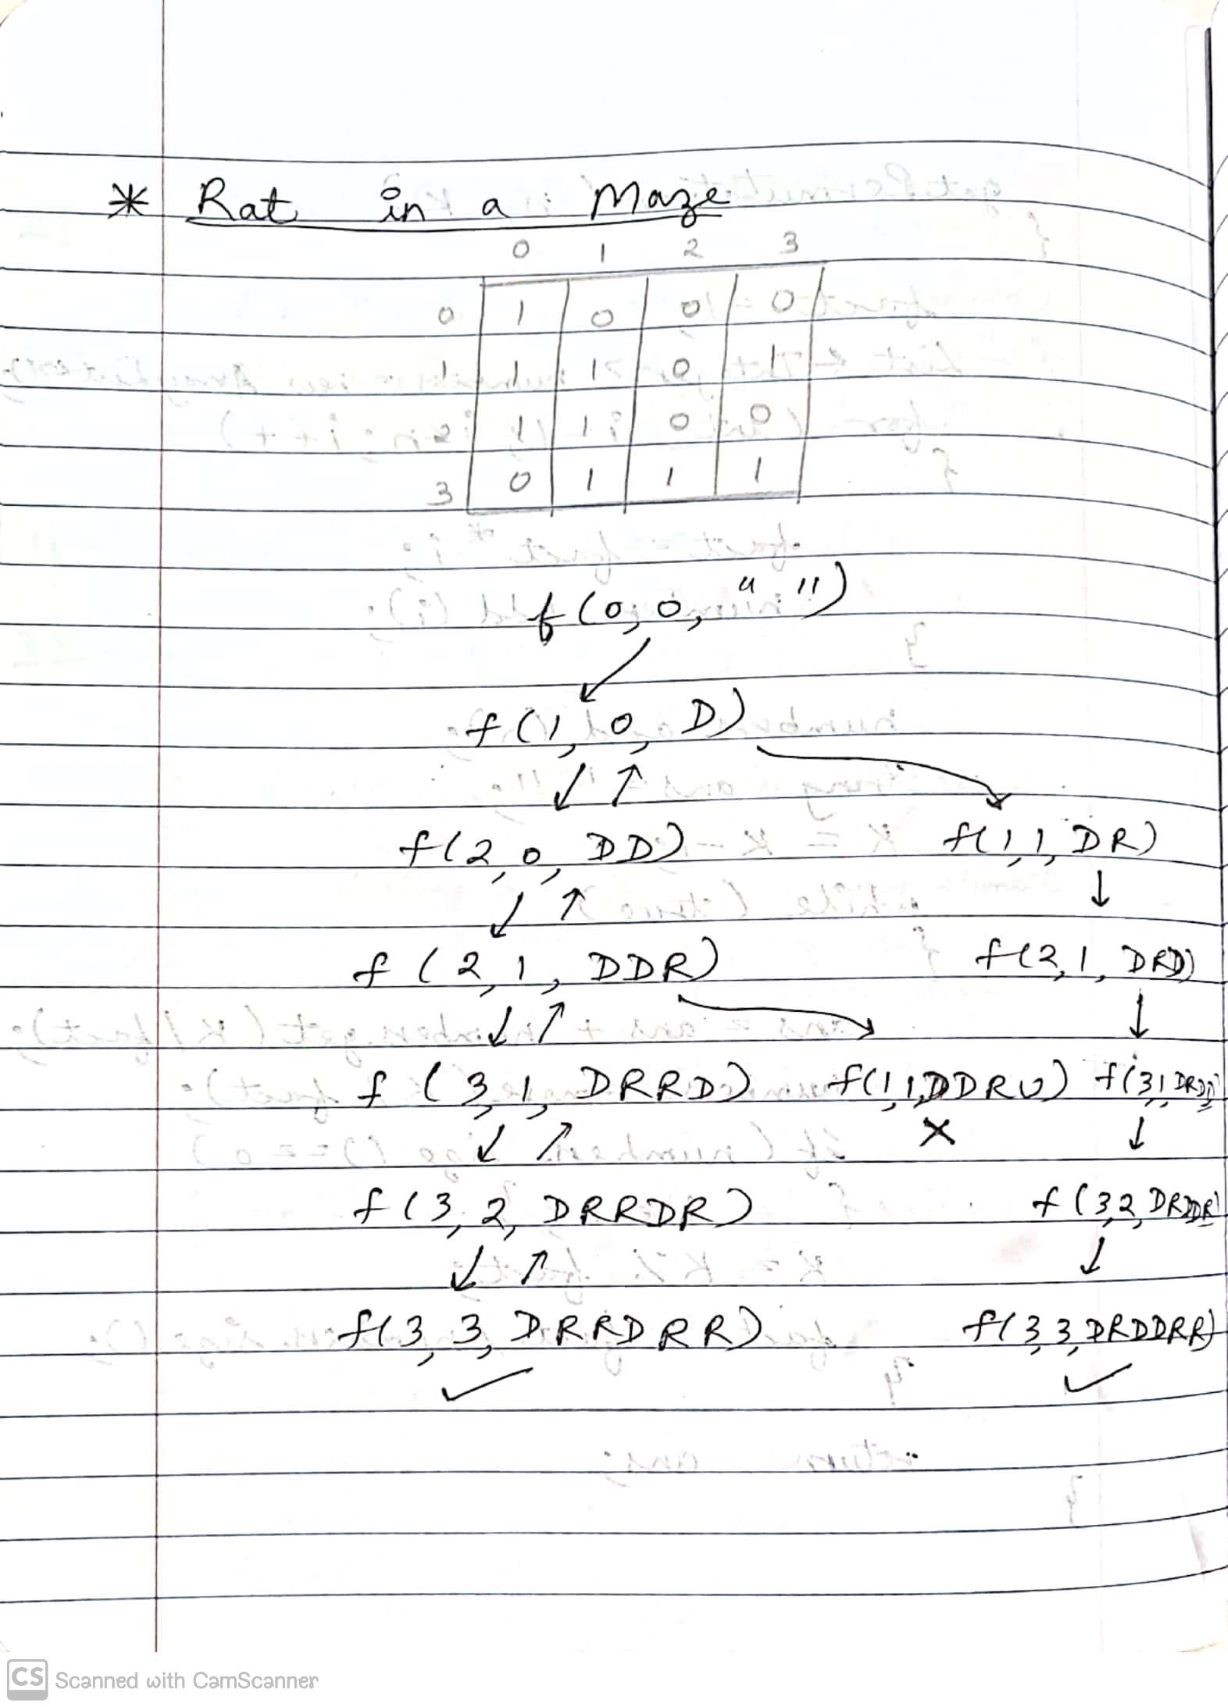 * Rat in a Maze
0 1 2 3
0 1 0 0 0
1 1 1 0 1
2 1 1 0 0
3 0 1 1 1
f(0, 0, " ")
f(1, 0, D)
f(2, 0, DD) f(1, 1, DR)
f(2, 1, DDR) f(2, 1, DRD)
f(3, 1, DRRD) f(1, 1, DDRU) f(3, 1, DRDD)
f(3, 2, DRRDR) f(3, 2, DRDDR)
f(3, 3, DRRDRR) f(3, 3, DRDDRR)
CS Scanned with CamScanner